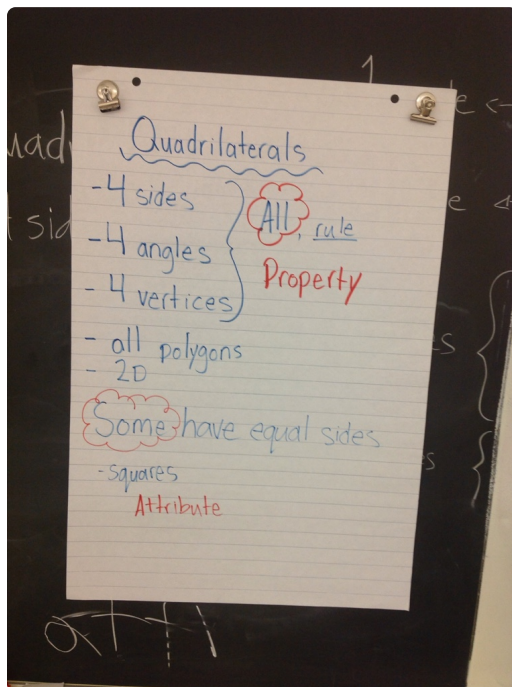 Quadrilaterals
- 4 sides
- 4 angles
- 4 vertices
All, rule
Property
- all polygons
- 2D
Some have equal sides
- squares
Attribute